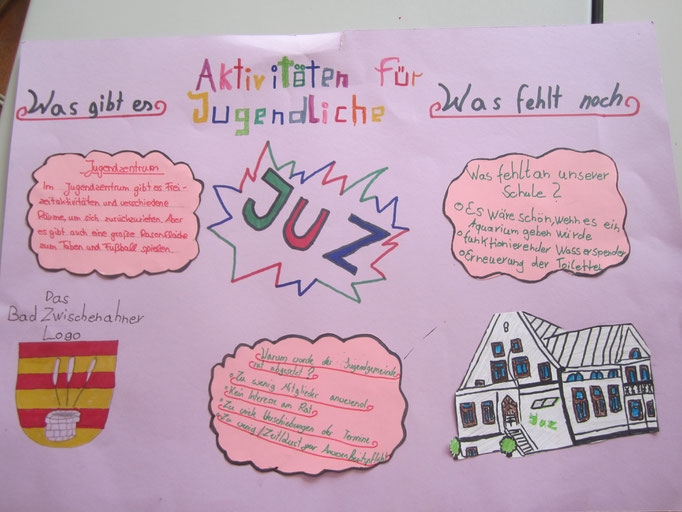 Aktivitäten für
Jugendliche
Was gibt es
Was fehlt noch
Jugendzentrum
Im Jugendzentrum gibt es Frei-
zeitaktivitäten und verschiedene
Räume, um sich zurückzuziehen. Aber
es gibt auch eine große Rasenfläche
zum Toben und Fußball spielen.
JUZ
Was fehlt an unserer
Schule?
Es wäre schön, wenn es ein
Aquarium geben würde
funktionierender Wasserspender
Erneuerung der Toiletten
Das
Bad Zwischenahner
Logo
Warum wurde der Jugendgemeinde
rat abgesetzt?
Zu wenig Mitglieder anwesend
Kein Interesse am Rat
Zu viele Verschiebungen der Termine
Zu wenig Zeit/Lust zur
JUZ